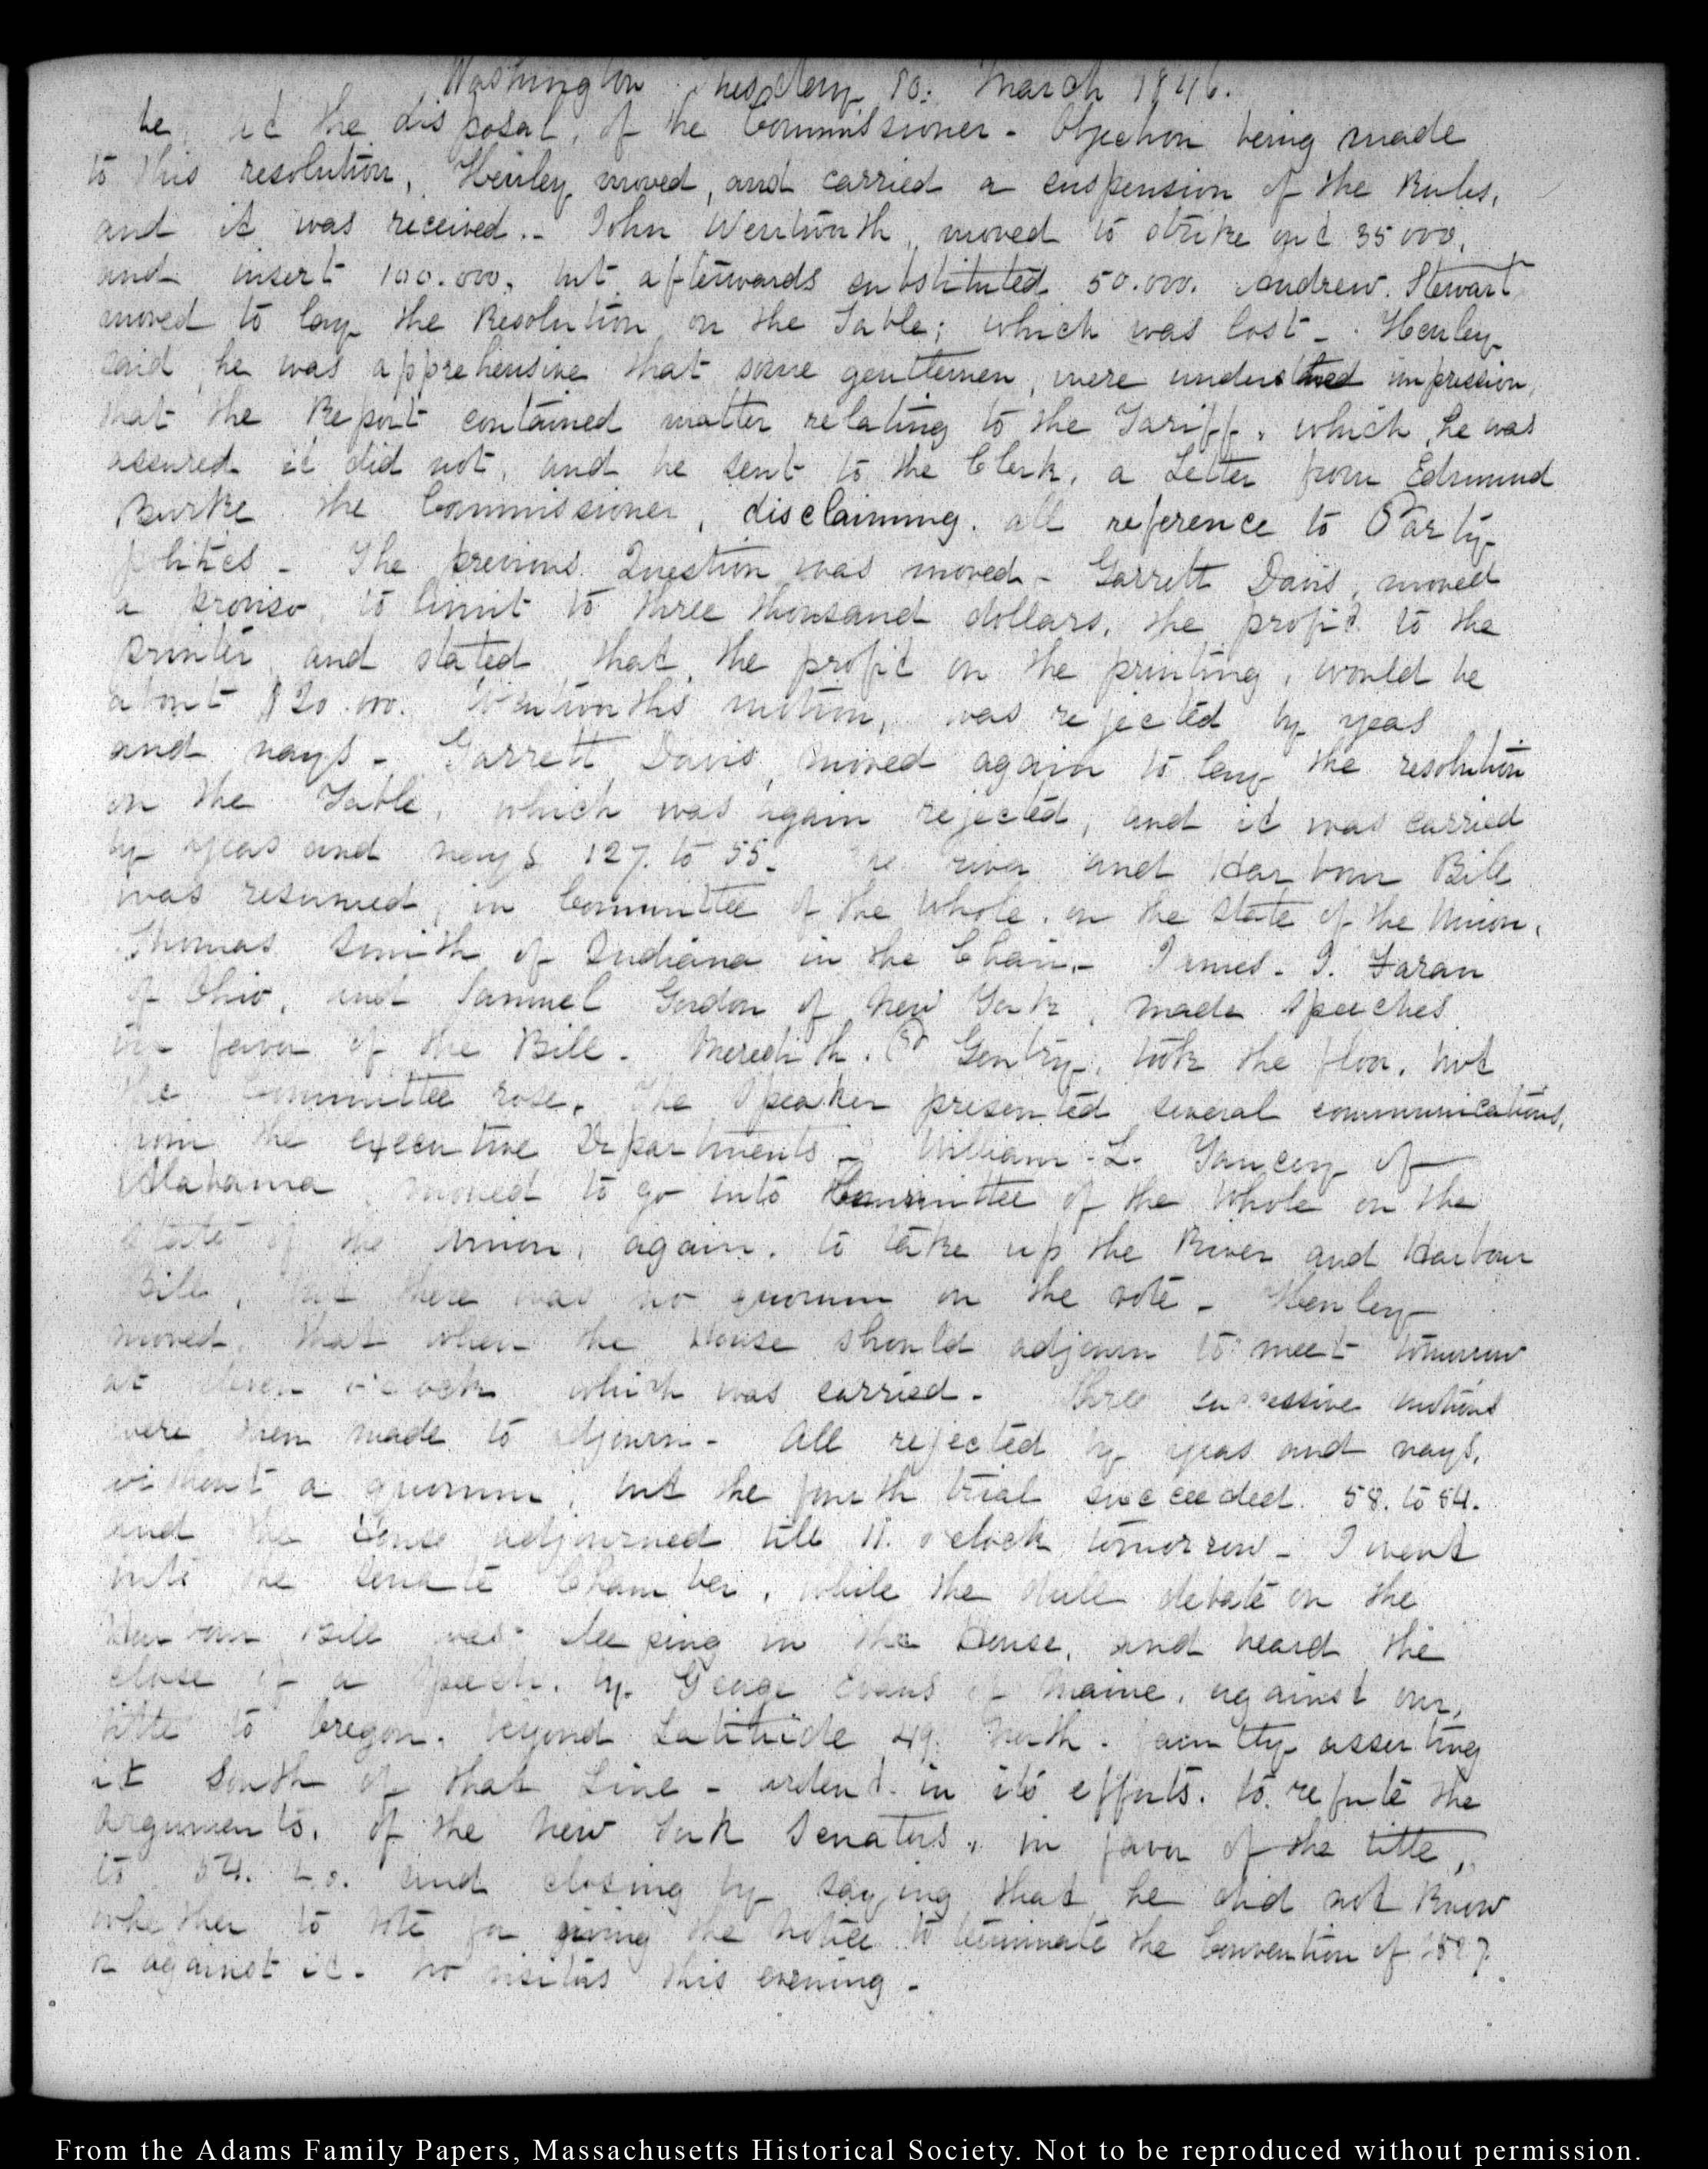 Washington Tuesday 10. March 1846.
be, at the disposal, of the Commissioner - Objection being made
to this resolution, Henley moved, and carried a suspension of the Rules,
and it was received.- John Wentworth, moved to strike out 35000,
and insert 100.000, but afterwards substituted 50.000. Andrew Stewart
moved to lay the Resolution on the Table; which was lost - Henley
said he was apprehensive that some gentlemen, were under impression,
that the Report contained matter relating to the Tariff, which he was
assured it did not, and he sent to the Clerk, a Letter from Edmund
Burke the Commissioner, disclaiming all reference to Party
politics - The previous Question was moved - Garrett Davis, moved
a proviso, to limit to three thousand dollars, the profit to the
printer, and stated that the profit on the printing, would be
about $20.000. Wentworth's motion, was rejected by yeas
and nays - Garrett Davis moved again to lay the resolution
on the Table, which was again rejected, and it was carried
by yeas and nays 127. to 55. The river and Harbour Bill
was resumed, in Committee of the Whole, on the state of the Union,
Thomas Smith of Indiana in the Chair.- James. J. Faran
of Ohio, and Samuel Gordon of New York, made speeches
in favor of the Bill - Meredith. P. Gentry, took the floor, but
the Committee rose. The Speaker presented several communications,
from the executive Departments - William. L. Yancey of
Alabama, moved to go into Committee of the Whole on the
state of the Union, again, to take up the River and Harbour
Bill, but there was no quorum on the vote - Henley
moved, that when the House should adjourn to meet tomorrow
at eleven o'clock which was carried - three successive motions
were then made to adjourn - All rejected by yeas and nays,
without a quorum, but the fourth trial succeeded. 58. to 54.
and the House adjourned till 11. o'clock tomorrow - I went
into the Senate Chamber, while the dull debate on the
Harbour Bill was sleeping in the House, and heard the
close of a Speech, by George Evans of Maine, against our
title to Oregon, beyond Latitude 49. North - faintly asserting
it South of that Line - ardent in its efforts, to refute the
arguments, of the New York Senators, in favor of the title,
to 54. 40. and closing by saying that he did not know
whether to vote for giving the notice to terminate the Convention of 1827.
or against it - No visitors this evening -
From the Adams Family Papers, Massachusetts Historical Society. Not to be reproduced without permission.